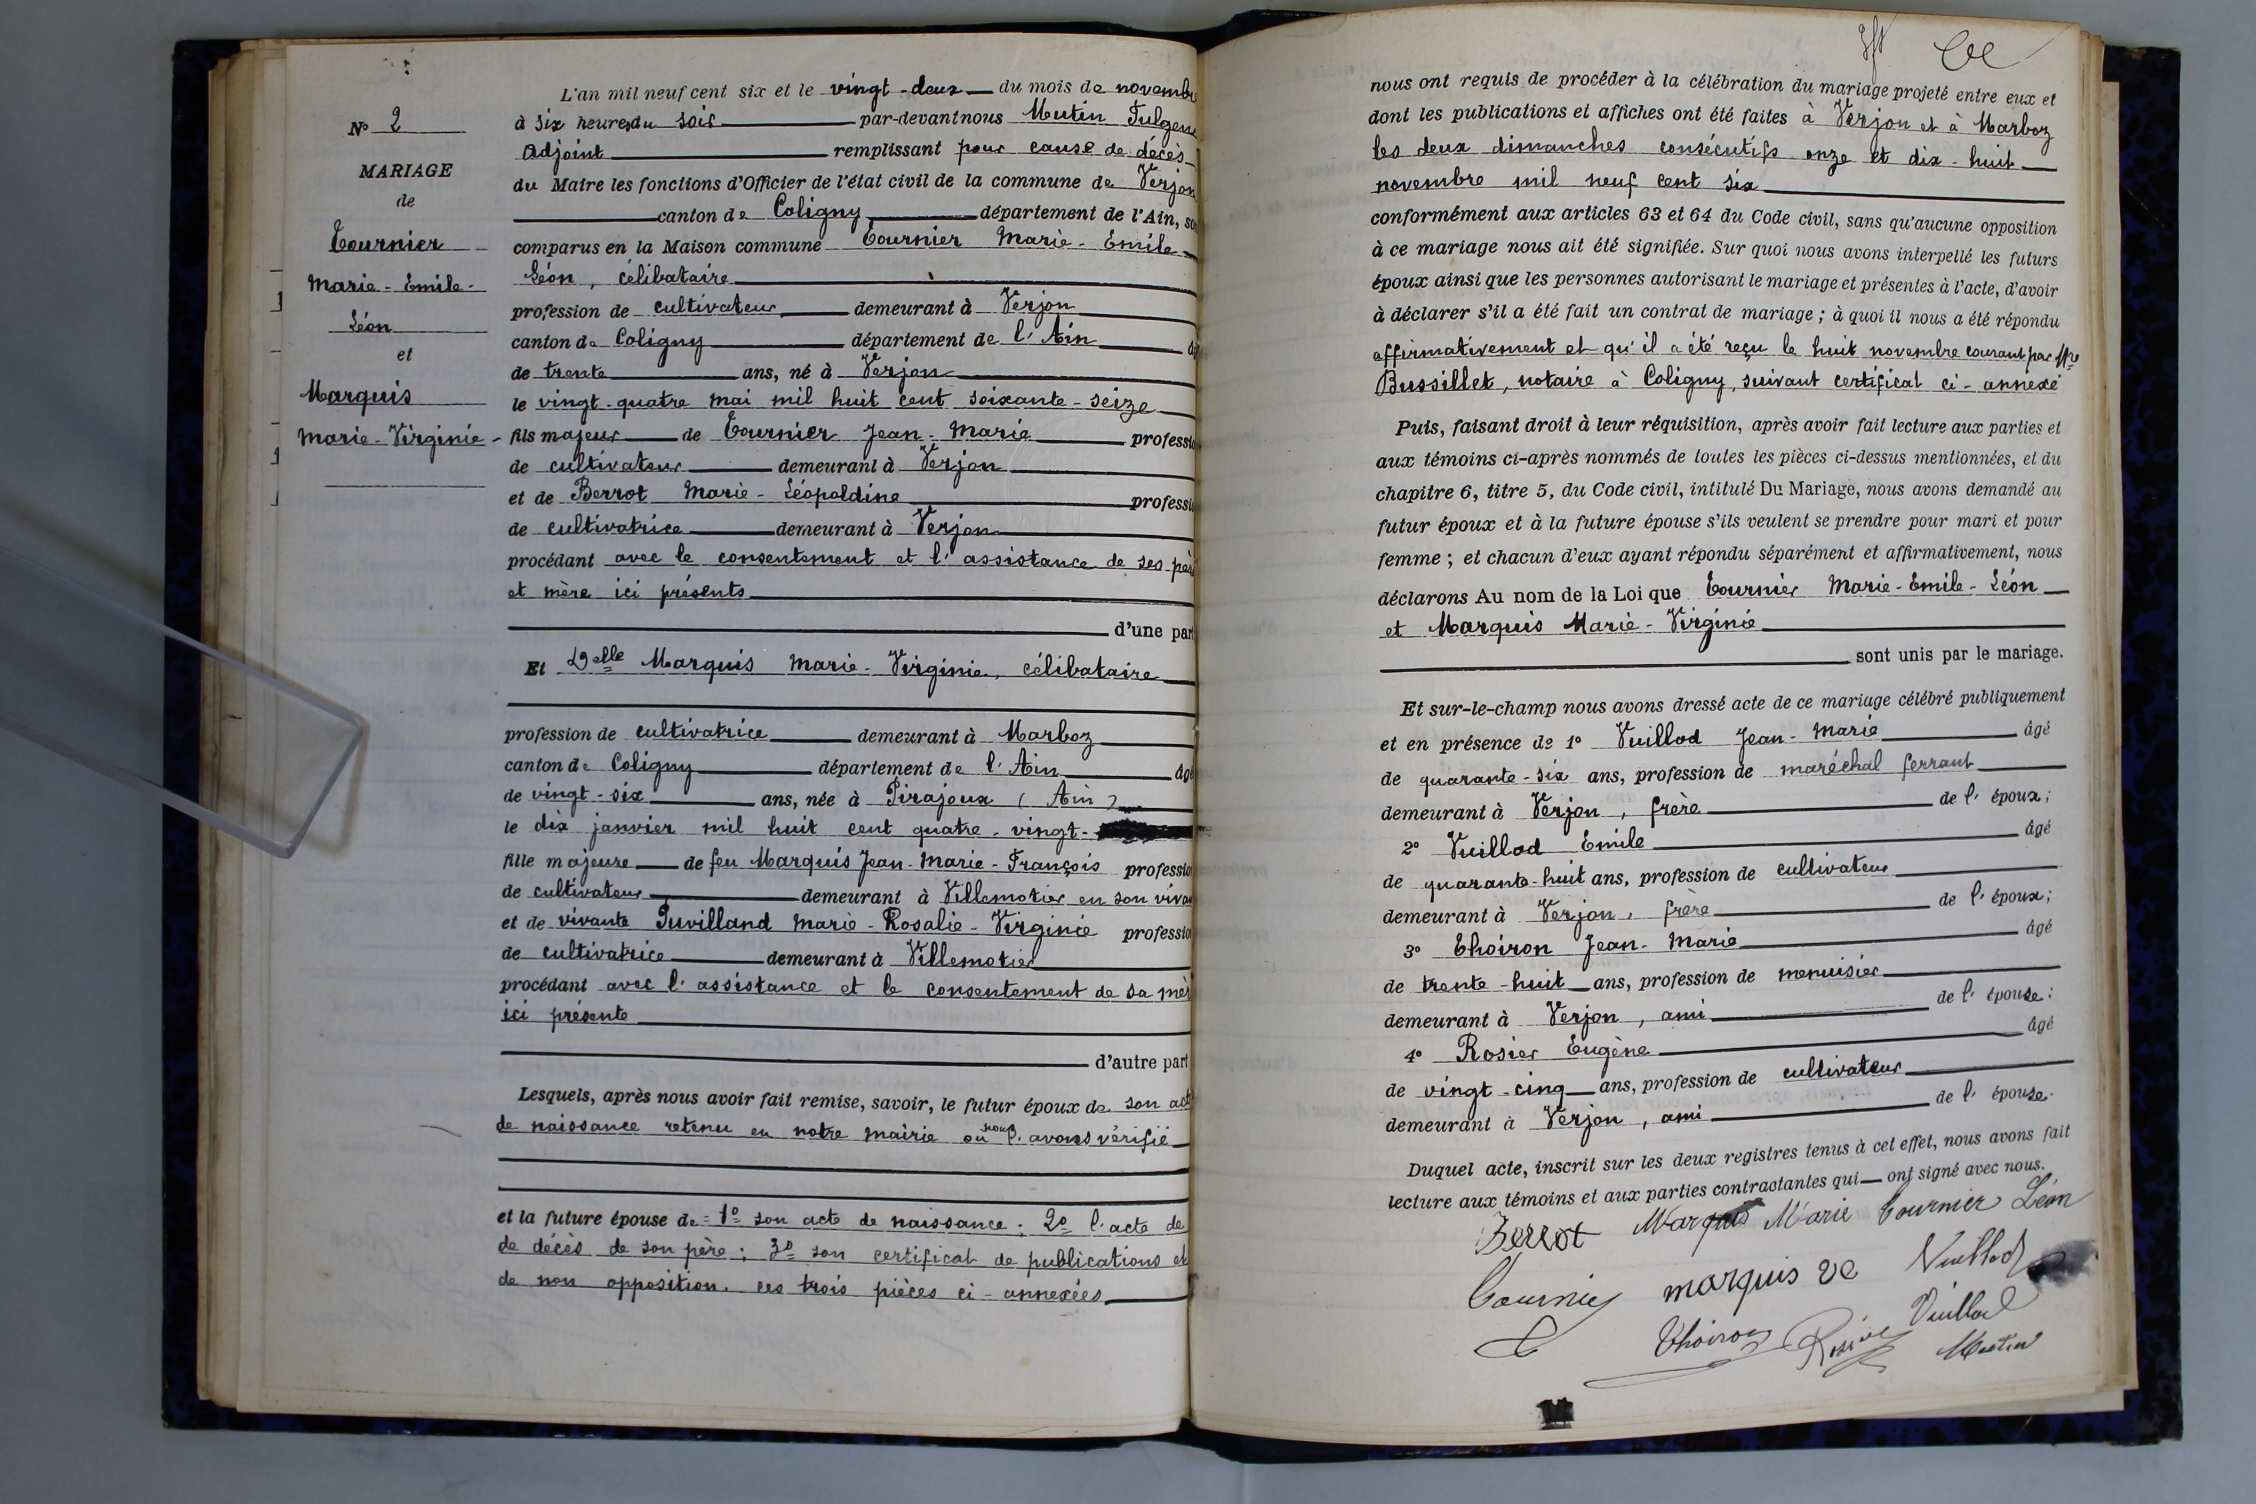 N° 2
MARIAGE
de
Tournier
Marie-Emile-
Léon
et
Marquis
Marie-Virginie-
L'an mil neuf cent six et le vingt-deux du mois de novembre
à six heures du soir par-devant nous Mutin Fulgence
Adjoint remplissant pour cause de décès
du Maire les fonctions d'Officier de l'état civil de la commune de Verjon
canton de Coligny département de l'Ain, so
comparus en la Maison commune Tournier Marie-Emile-
Léon, célibataire
profession de cultivateur demeurant à Verjon
canton de Coligny département de l'Ain
de trente ans, né à Verjon
le vingt-quatre mai mil huit cent soixante-seize
fils majeur de Tournier Jean-Marie professio
de cultivateur demeurant à Verjon
et de Berrot Marie-Léopoldine professi
de cultivatrice demeurant à Verjon
procédant avec le consentement et l'assistance de ses père
et mère ici présents
d'une part
Et Delle Marquis Marie-Virginie, célibataire
profession de cultivatrice demeurant à Marboz
canton de Coligny département de l'Ain âgé
de vingt-six ans, née à Pirajoux (Ain)
le dix janvier mil huit cent quatre-vingt-
fille majeure de feu Marquis Jean-Marie-François professio
de cultivateur demeurant à Villemotier en son vivan
et de vivante Puvilland Marie-Rosalie-Virginie professio
de cultivatrice demeurant à Villemotier
procédant avec l'assistance et le consentement de sa mère
ici présente
d'autre part
Lesquels, après nous avoir fait remise, savoir, le futur époux de son acte
de naissance retenu en notre mairie où nous l'avons vérifié
et la future épouse de = 1° son acte de naissance; 2° l'acte de
de décès de son père; 3° son certificat de publications et
de non opposition. ces trois pièces ci-annexées
nous ont requis de procéder à la célébration du mariage projeté entre eux et
dont les publications et affiches ont été faites à Verjon et à Marboz
les deux dimanches consécutifs onze et dix-huit
novembre mil neuf cent six
conformément aux articles 63 et 64 du Code civil, sans qu'aucune opposition
à ce mariage nous ait été signifiée. Sur quoi nous avons interpellé les futurs
époux ainsi que les personnes autorisant le mariage et présentes à l'acte, d'avoir
à déclarer s'il a été fait un contrat de mariage; à quoi il nous a été répondu
affirmativement et qu'il a été reçu le huit novembre courant par Me
Bussillet, notaire à Coligny, suivant certificat ci-annexé
Puis, faisant droit à leur réquisition, après avoir fait lecture aux parties et
aux témoins ci-après nommés de toutes les pièces ci-dessus mentionnées, et du
chapitre 6, titre 5, du Code civil, intitulé Du Mariage, nous avons demandé au
futur époux et à la future épouse s'ils veulent se prendre pour mari et pour
femme; et chacun d'eux ayant répondu séparément et affirmativement, nous
déclarons Au nom de la Loi que Tournier Marie-Emile-Léon
et Marquis Marie-Virginie
sont unis par le mariage.
Et sur-le-champ nous avons dressé acte de ce mariage célébré publiquement
et en présence de 1° Vuillod Jean-Marie âgé
de quarante-six ans, profession de maréchal ferrant
demeurant à Verjon, frère de l'époux;
2° Vuillod Emile âgé
de quarante-huit ans, profession de cultivateur
demeurant à Verjon, frère de l'époux;
3° Thoiron Jean-Marie âgé
de trente-huit ans, profession de menuisier
demeurant à Verjon, ami de l'épouse;
4° Rosier Eugène âgé
de vingt-cinq ans, profession de cultivateur
demeurant à Verjon, ami de l'épouse.
Duquel acte, inscrit sur les deux registres tenus à cet effet, nous avons fait
lecture aux témoins et aux parties contractantes qui ont signé avec nous.
Berrot Marquis Marie Tournier Léon
Tournier marquis ve Vuillod
Thoiron Rosier Vuillod
Mutin